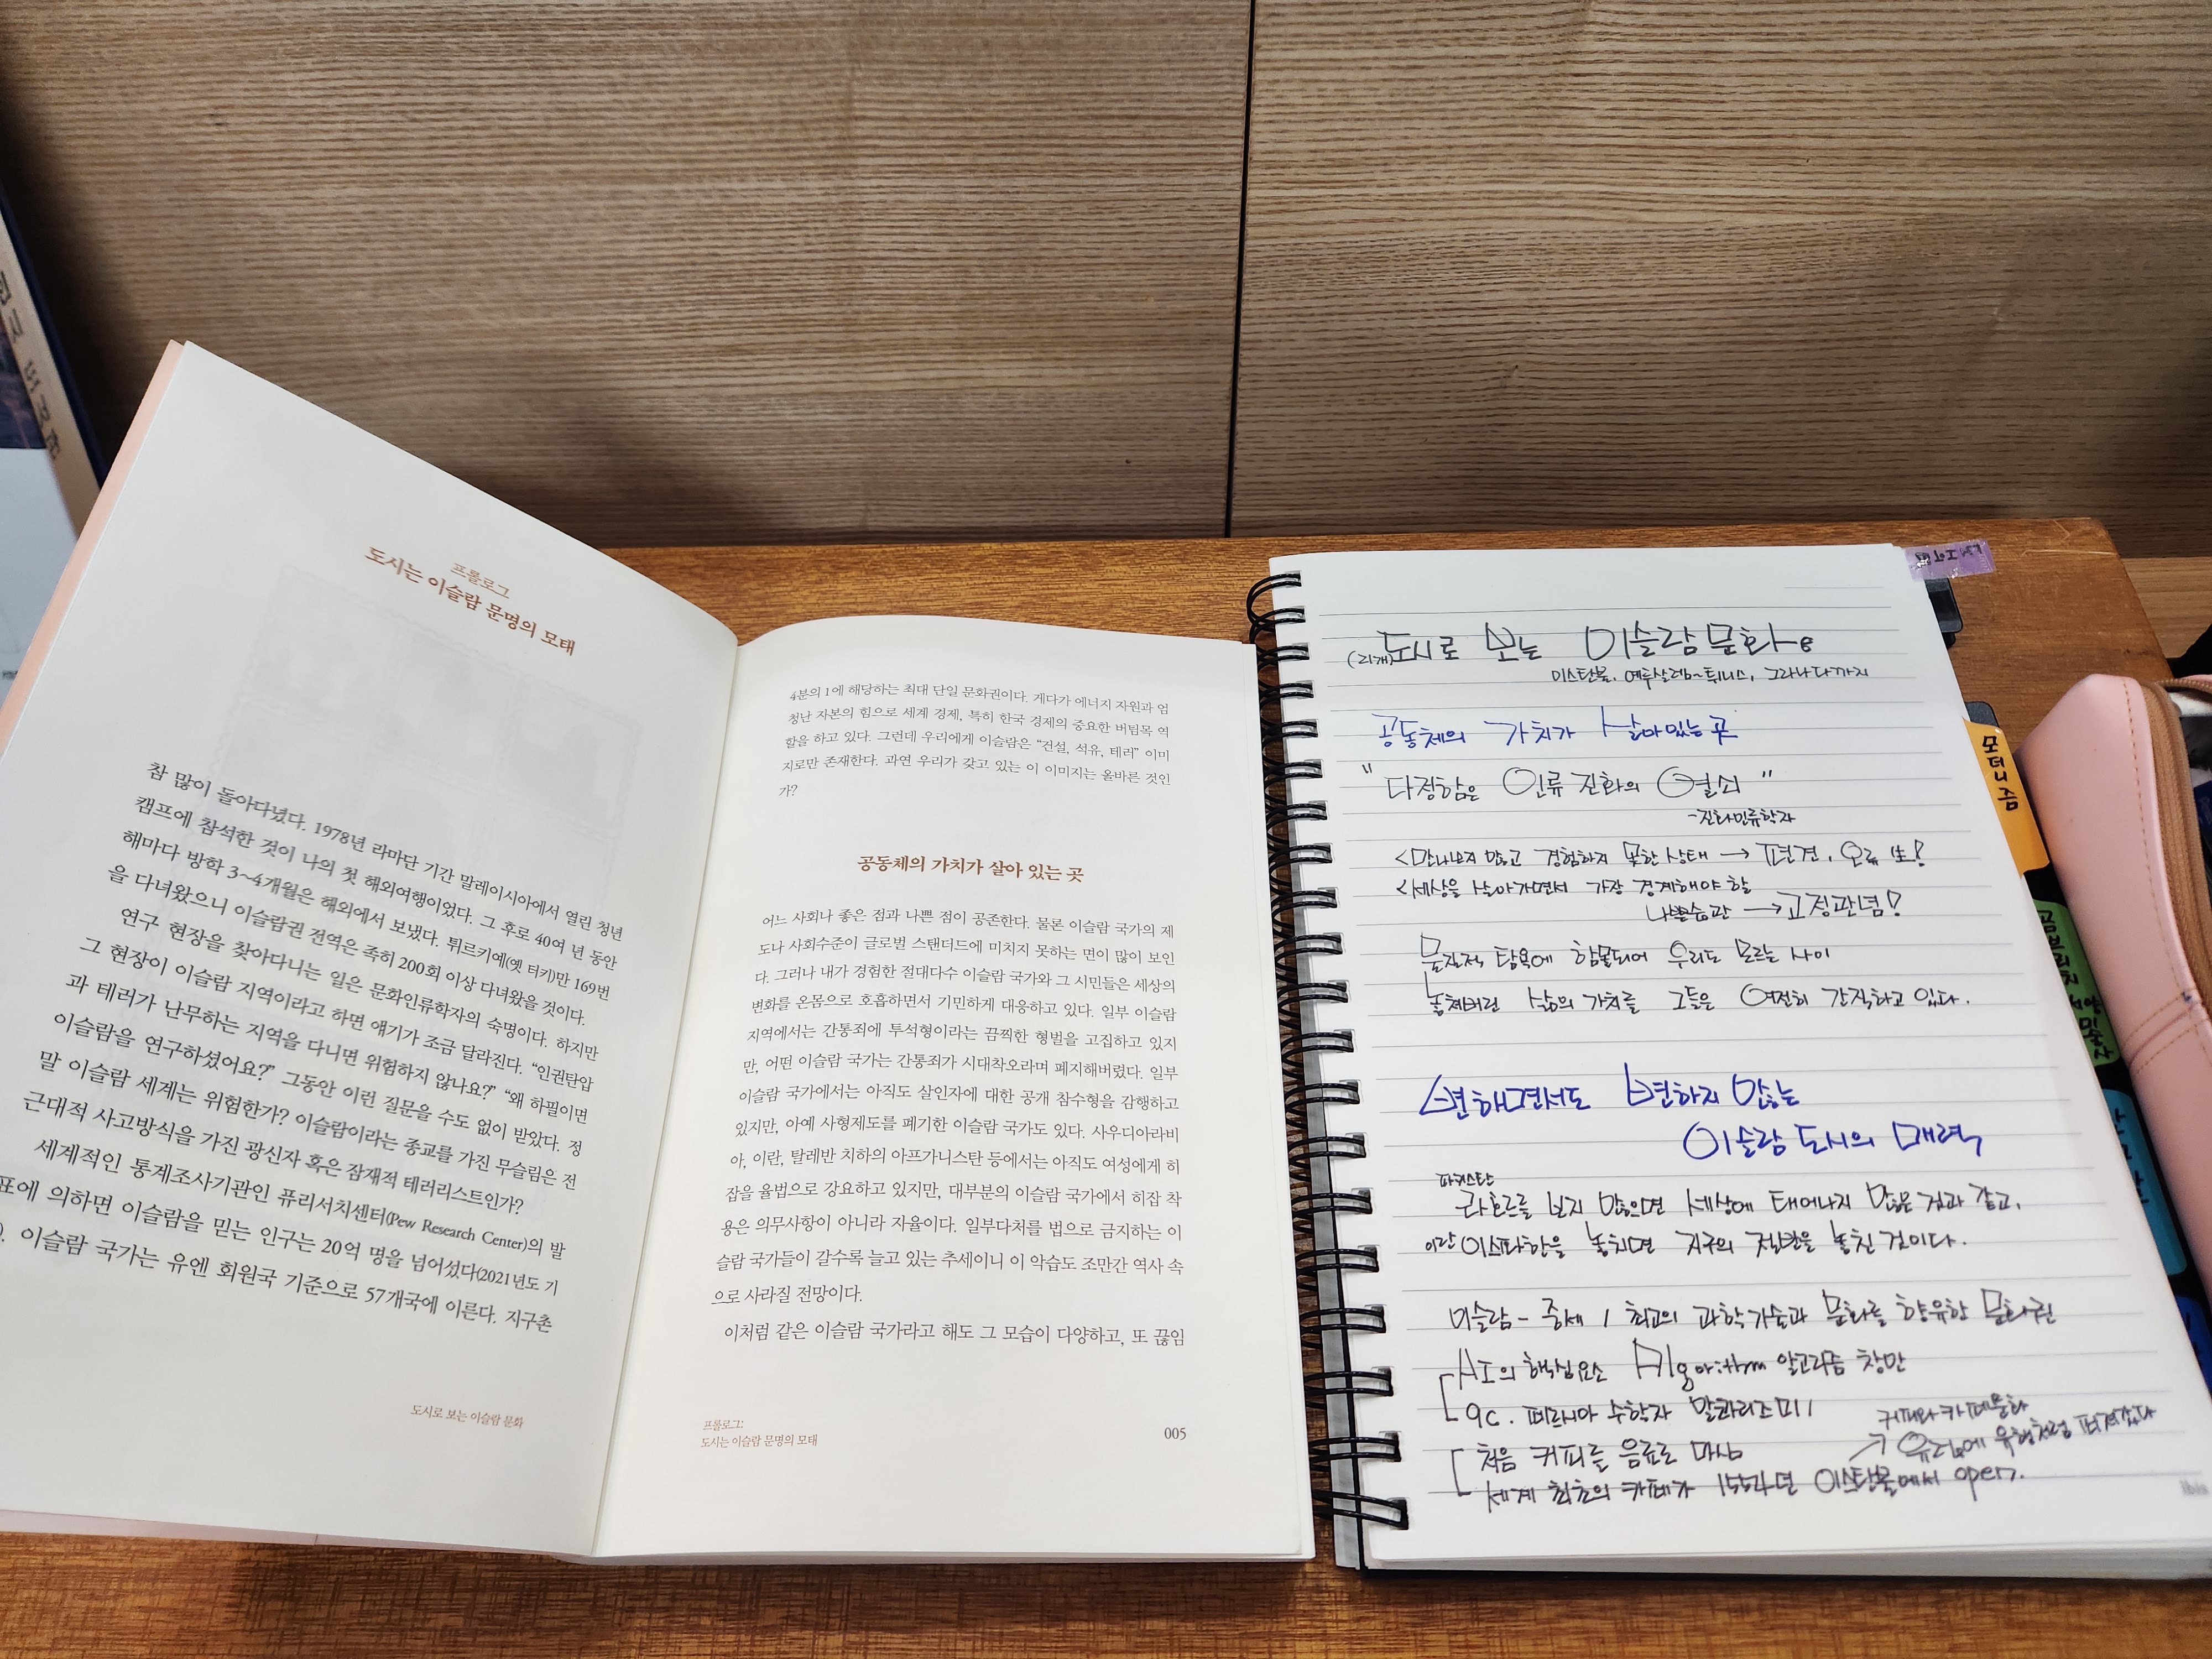 프롤로그
도시는 이슬람 문명의 모태
참 많이 돌아다녔다. 1978년 라마단 기간 말레이시아에서 열린 청년
캠프에 참석한 것이 나의 첫 해외여행이었다. 그 후로 40여 년 동안
해마다 방학 3~4개월은 해외에서 보냈다. 튀르키예(옛 터키)만 169번
을 다녀왔으니 이슬람권 전역은 족히 200회 이상 다녀왔을 것이다.
연구 현장을 찾아다니는 일은 문화인류학자의 숙명이다. 하지만
그 현장이 이슬람 지역이라고 하면 얘기가 조금 달라진다. “인권탄압
과 테러가 난무하는 지역을 다니면 위험하지 않나요?” “왜 하필이면
이슬람을 연구하셨어요?” 그동안 이런 질문을 수도 없이 받았다. 정
말 이슬람 세계는 위험한가? 이슬람이라는 종교를 가진 무슬림은 전
근대적 사고방식을 가진 광신자 혹은 잠재적 테러리스트인가?
세계적인 통계조사기관인 퓨리서치센터(Pew Research Center)의 발
표에 의하면 이슬람을 믿는 인구는 20억 명을 넘어섰다(2021년도 기
). 이슬람 국가는 유엔 회원국 기준으로 57개국에 이른다. 지구촌
도시로 보는 이슬람 문화
4분의 1에 해당하는 최대 단일 문화권이다. 게다가 에너지 자원과 엄
청난 자본의 힘으로 세계 경제, 특히 한국 경제의 중요한 버팀목 역
할을 하고 있다. 그런데 우리에게 이슬람은 “건설, 석유, 테러” 이미
지로만 존재한다. 과연 우리가 갖고 있는 이 이미지는 올바른 것인
가?
공동체의 가치가 살아 있는 곳
어느 사회나 좋은 점과 나쁜 점이 공존한다. 물론 이슬람 국가의 제
도나 사회수준이 글로벌 스탠더드에 미치지 못하는 면이 많이 보인
다. 그러나 내가 경험한 절대다수 이슬람 국가와 그 시민들은 세상의
변화를 온몸으로 호흡하면서 기민하게 대응하고 있다. 일부 이슬람
지역에서는 간통죄에 투석형이라는 끔찍한 형벌을 고집하고 있지
만, 어떤 이슬람 국가는 간통죄가 시대착오라며 폐지해버렸다. 일부
이슬람 국가에서는 아직도 살인자에 대한 공개 참수형을 감행하고
있지만, 아예 사형제도를 폐기한 이슬람 국가도 있다. 사우디아라비
아, 이란, 탈레반 치하의 아프가니스탄 등에서는 아직도 여성에게 히
잡을 율법으로 강요하고 있지만, 대부분의 이슬람 국가에서 히잡 착
용은 의무사항이 아니라 자율이다. 일부다처를 법으로 금지하는 이
슬람 국가들이 갈수록 늘고 있는 추세이니 이 악습도 조만간 역사 속
으로 사라질 전망이다.
이처럼 같은 이슬람 국가라고 해도 그 모습이 다양하고, 또 끊임
프롤로그:
도시는 이슬람 문명의 모태
005
도시로 보는 이슬람 문화
이스탄불, 예루살렘~튀니스, 그라나다까지
공동체의 가치가 살아있는 곳
"다정함은 인류 진화의 열쇠"
-진화인류학자
<만나보지 않고 경험하지 못한 상태 → 편견, 오류 生!
<세상을 살아가면서 가장 경계해야 할
나쁜습관 → 고정관념!
물질적 탐욕에 함몰되어 우리도 모르는 사이
놓쳐버린 삶의 가치를 그들은 여전히 간직하고 있다.
변해면서도 변하지 않는
이슬람 도시의 매력
파키스탄
라호르를 보지 않으면 세상에 태어나지 않은 것과 같고,
이란 이스파한을 놓치면 지구의 절반을 놓친 것이다.
이슬람 - 중세 / 최고의 과학기술과 문화를 향유한 문화권
AI의 핵심요소 Algorithm 알고리즘 창안
9c. 페르시아 수학자 알콰리즈미
처음 커피를 음료로 마심
세계 최초의 카페가 1554년 이스탄불에서 open.
→ 커피와 카페문화
유럽에 유행처럼 퍼져갔다
모더니즘
곰브리치 서양미술사